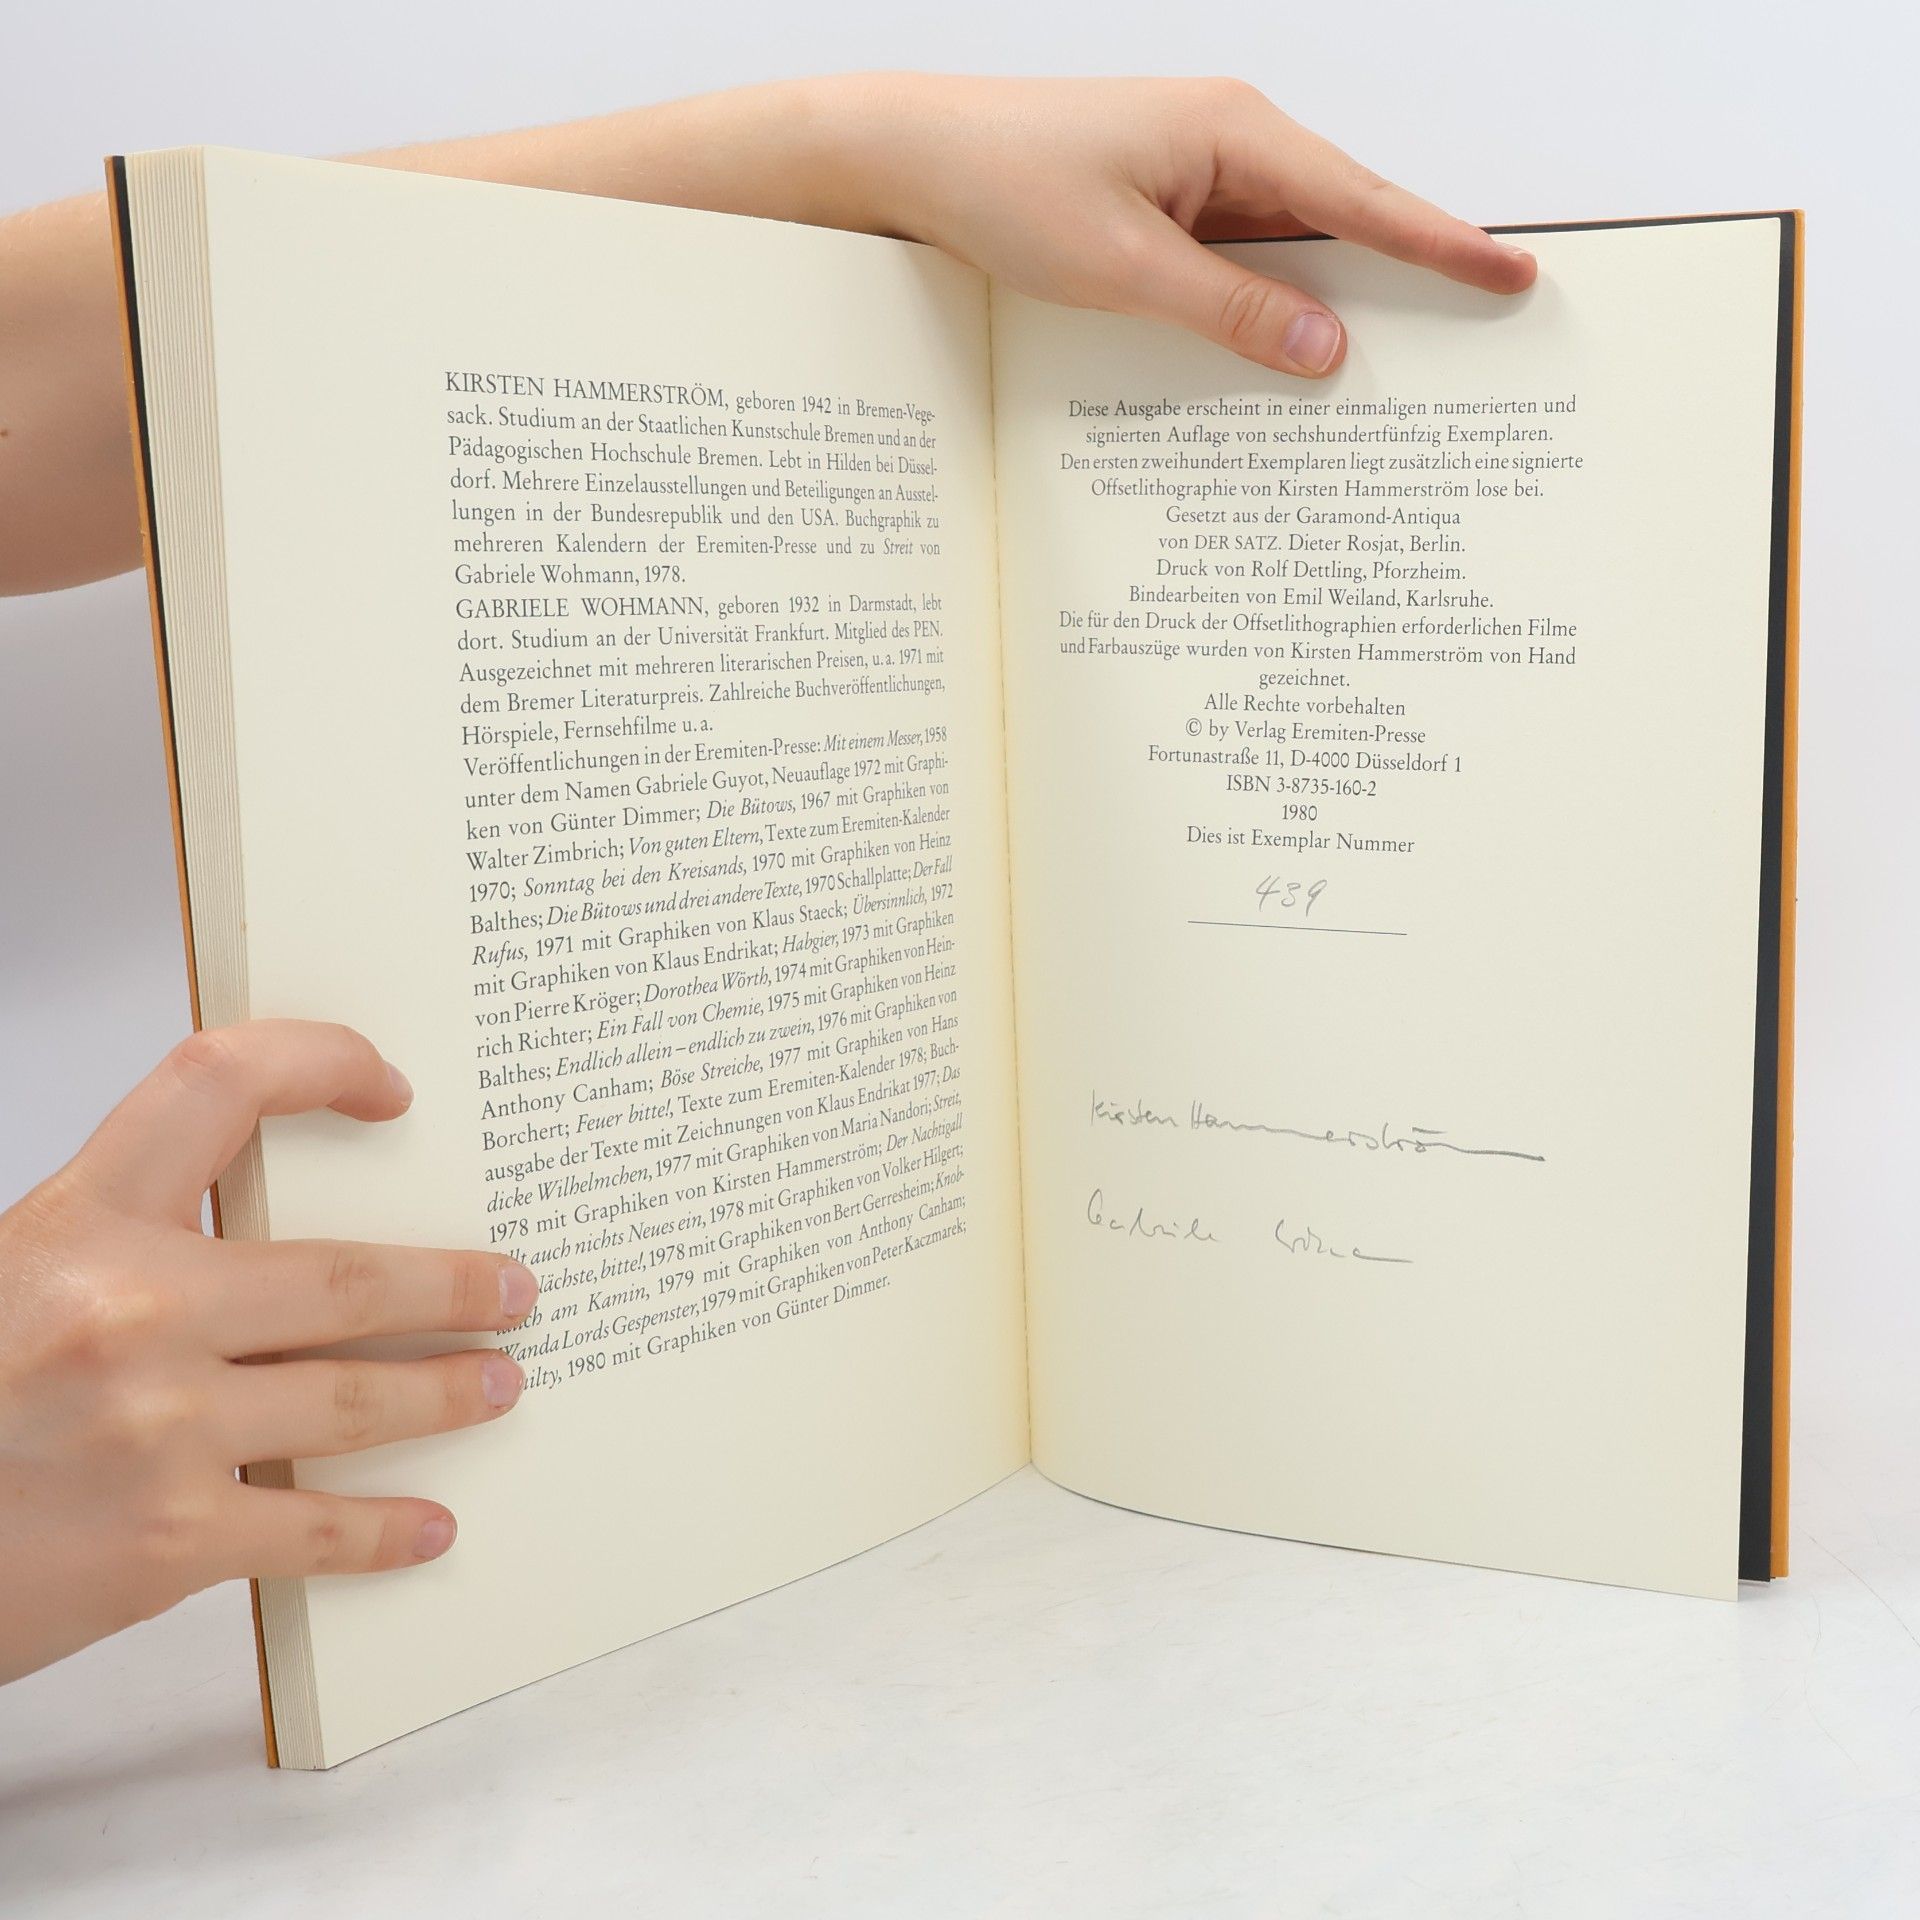 KIRSTEN HAMMERSTRÖM, geboren 1942 in Bremen-Vege-
sack. Studium an der Staatlichen Kunstschule Bremen und an der
Pädagogischen Hochschule Bremen. Lebt in Hilden bei Düssel-
dorf. Mehrere Einzelausstellungen und Beteiligungen an Ausstel-
lungen in der Bundesrepublik und den USA. Buchgraphik zu
mehreren Kalendern der Eremiten-Presse und zu Streit von
Gabriele Wohmann, 1978.
GABRIELE WOHMANN, geboren 1932 in Darmstadt, lebt
dort. Studium an der Universität Frankfurt. Mitglied des PEN.
Ausgezeichnet mit mehreren literarischen Preisen, u. a. 1971 mit
dem Bremer Literaturpreis. Zahlreiche Buchveröffentlichungen,
Hörspiele, Fernsehfilme u. a.
Veröffentlichungen in der Eremiten-Presse: Mit einem Messer, 1958
unter dem Namen Gabriele Guyot, Neuauflage 1972 mit Graphi-
ken von Günter Dimmer; Die Bütows, 1967 mit Graphiken von
Walter Zimbrich; Von guten Eltern, Texte zum Eremiten-Kalender
1970; Sonntag bei den Kreisands, 1970 mit Graphiken von Heinz
Balthes; Die Bütows und drei andere Texte, 1970 Schallplatte; Der Fall
Rufus, 1971 mit Graphiken von Klaus Staeck; Übersinnlich, 1972
mit Graphiken von Klaus Endrikat; Habgier, 1973 mit Graphiken
von Pierre Kröger; Dorothea Wörth, 1974 mit Graphiken von Hein-
rich Richter; Ein Fall von Chemie, 1975 mit Graphiken von Heinz
Balthes; Endlich allein – endlich zu zwein, 1976 mit Graphiken von
Anthony Canham; Böse Streiche, 1977 mit Graphiken von Hans
Borchert; Feuer bitte!, Texte zum Eremiten-Kalender 1978; Buch-
ausgabe der Texte mit Zeichnungen von Klaus Endrikat 1977; Das
dicke Wilhelmchen, 1977 mit Graphiken von Maria Nandori; Streit,
1978 mit Graphiken von Kirsten Hammerström; Der Nachtigall
auch nichts Neues ein, 1978 mit Graphiken von Volker Hilgert;
Nächste, bitte!, 1978 mit Graphiken von Bert Gerresheim; Knob-
lauch am Kamin, 1979 mit Graphiken von Anthony Canham;
Wanda Lords Gespenster, 1979 mit Graphiken von Peter Kaczmarek;
1980 mit Graphiken von Günter Dimmer.
Diese Ausgabe erscheint in einer einmaligen numerierten und
signierten Auflage von sechshundertfünfzig Exemplaren.
Den ersten zweihundert Exemplaren liegt zusätzlich eine signierte
Offsetlithographie von Kirsten Hammerström lose bei.
Gesetzt aus der Garamond-Antiqua
von DER SATZ. Dieter Rosjat, Berlin.
Druck von Rolf Dettling, Pforzheim.
Bindearbeiten von Emil Weiland, Karlsruhe.
Die für den Druck der Offsetlithographien erforderlichen Filme
und Farbauszüge wurden von Kirsten Hammerström von Hand
gezeichnet.
Alle Rechte vorbehalten
© by Verlag Eremiten-Presse
Fortunastraße 11, D-4000 Düsseldorf 1
ISBN 3-8735-160-2
1980
Dies ist Exemplar Nummer
439
Kirsten Hammerström
Gabriele